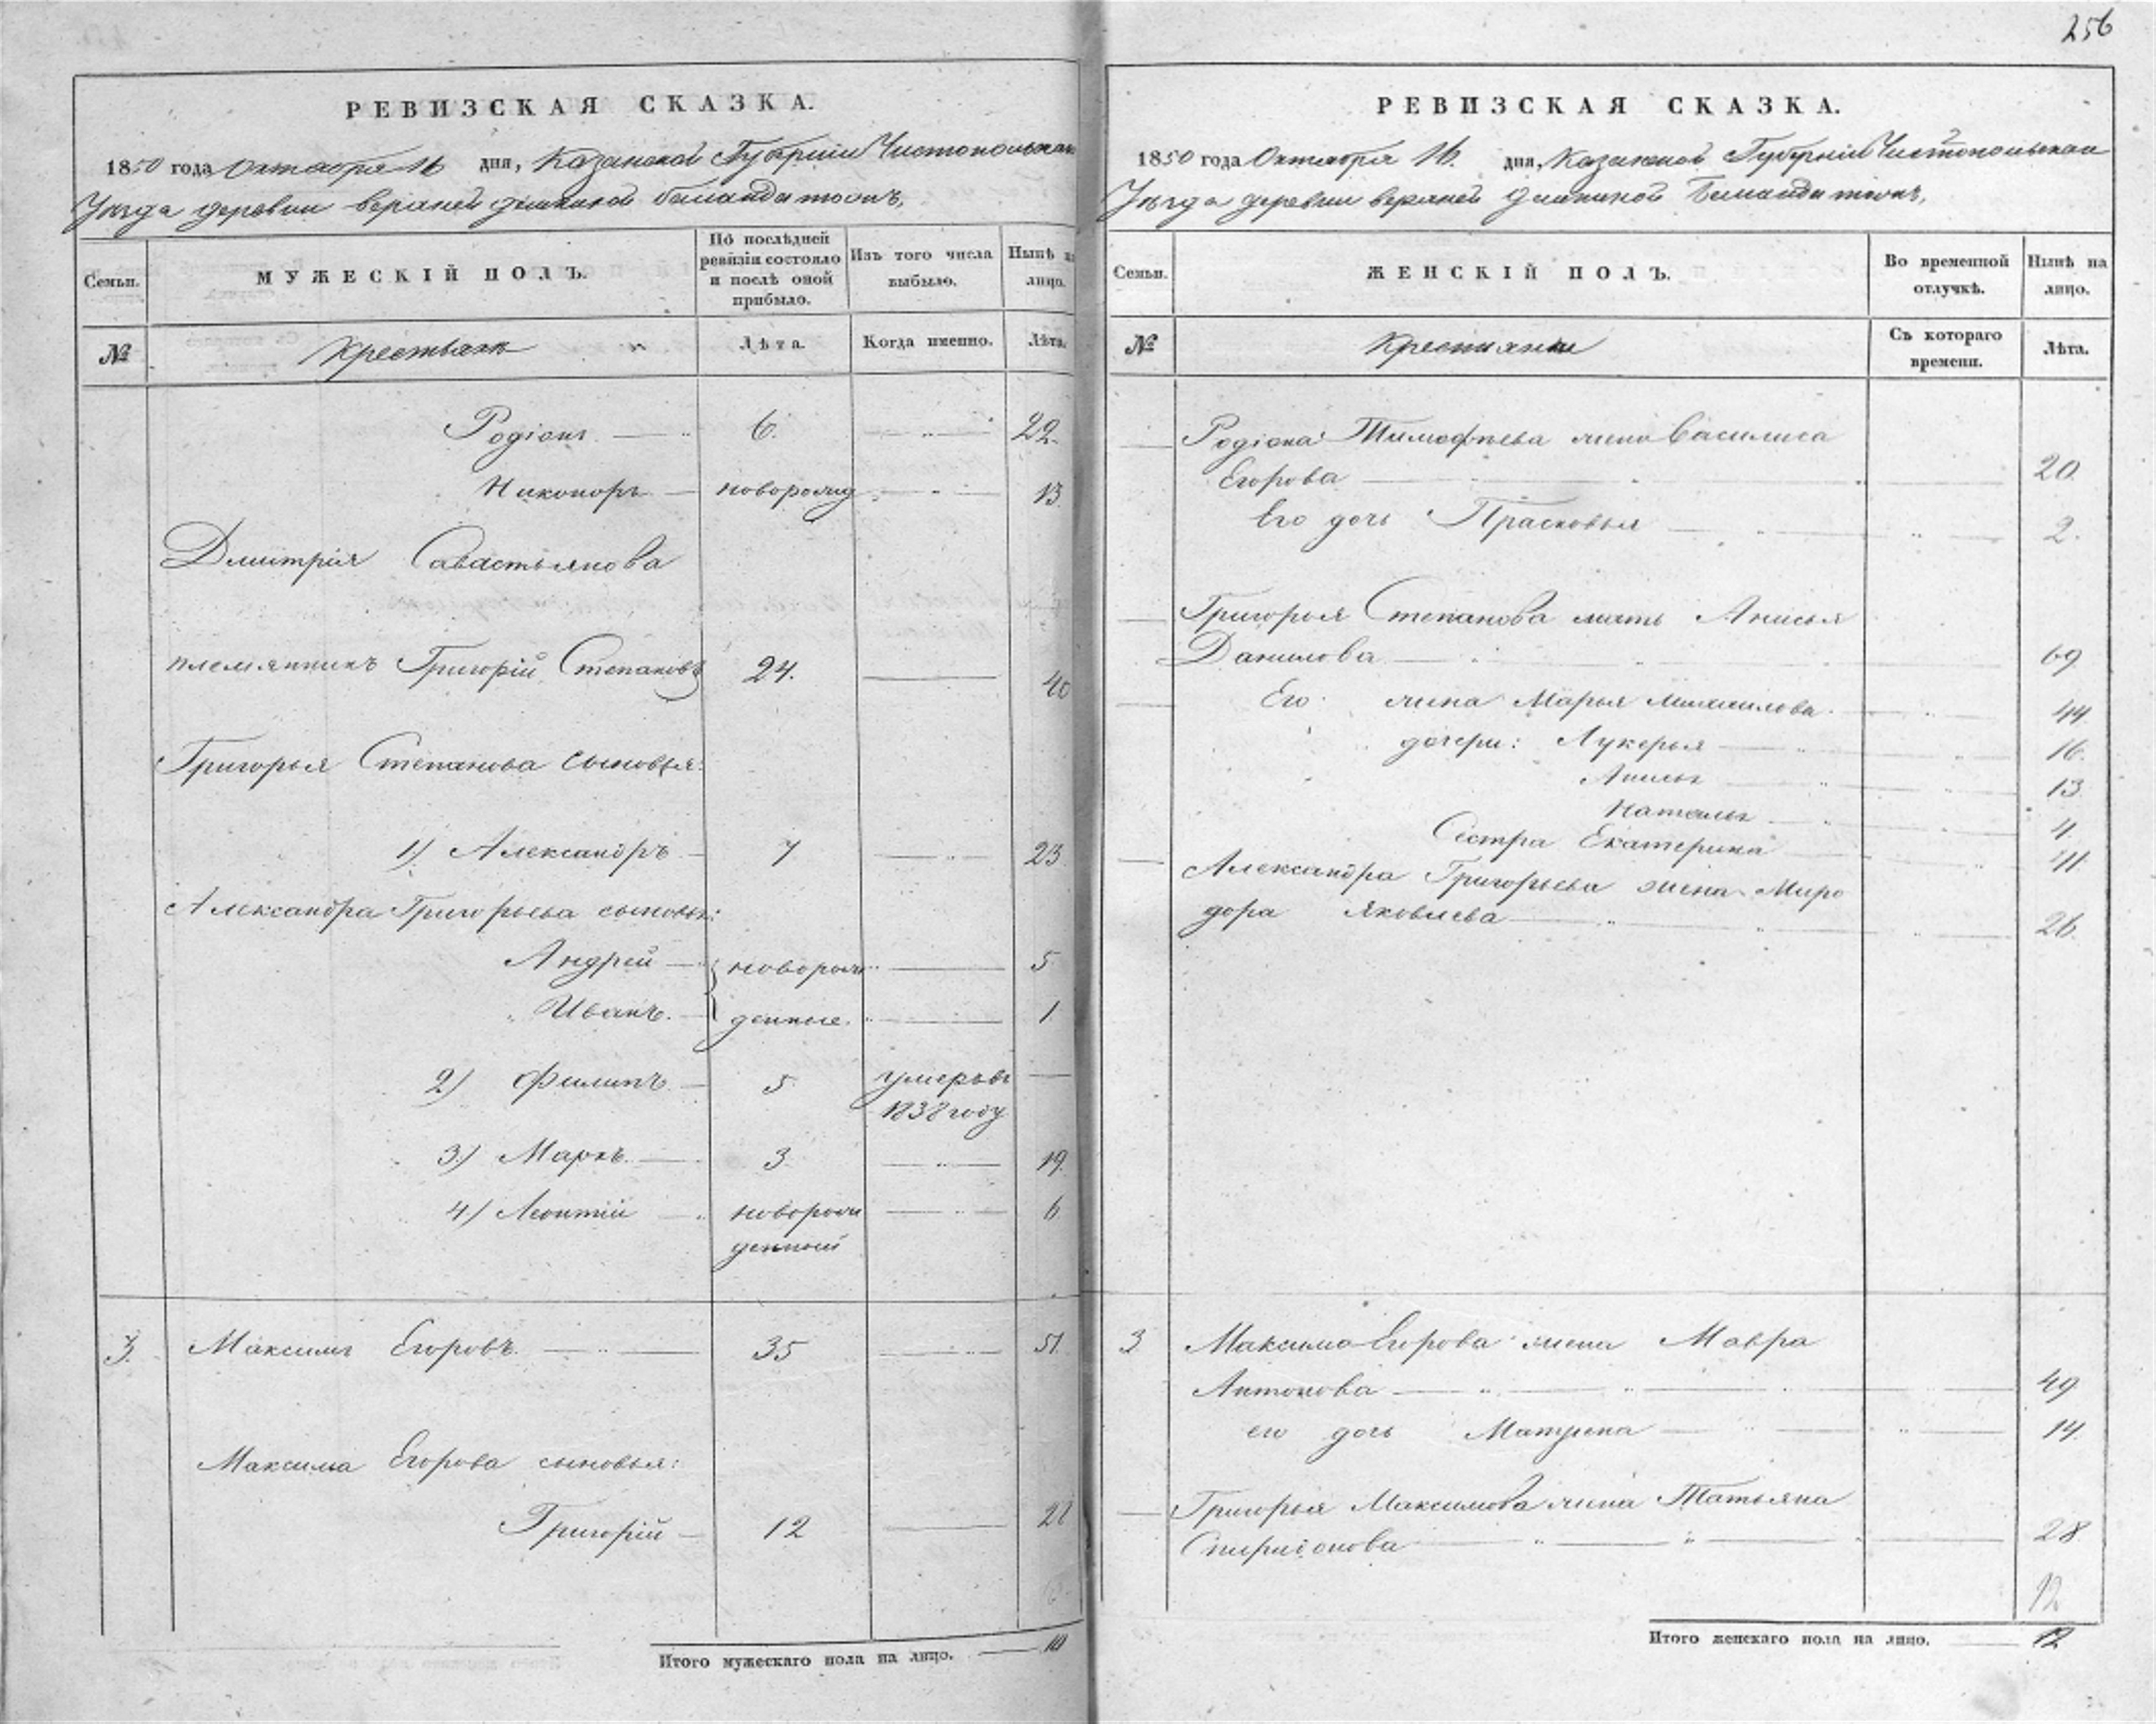 256
РЕВИЗСКАЯ СКАЗКА.
1850 года Октября 16 дня, Казанской Губерніи Чистопольскаго
Уѣзда деревни верхней
Семьи. МУЖЕСКІЙ ПОЛЪ. По послѣдней ревизіи состояло и послѣ оной прибыло. Изъ того числа выбыло. Нынѣ на лицо.
№ Крестьянъ Лѣта. Когда именно. Лѣта.
Родіонъ 6. 22.
Никоноръ новорожд 13
Дмитрія Савастьянова
племянникъ Григорій Степановъ 24. 40
Григорья Степанова сыновья:
1) Александръ 7 23
Александра Григорьева сыновья:
Андрей новорож 5
Иванъ. денные. 1
2) Филипъ 5 умеръ въ
1838 году
3) Маркъ. 3 19.
4) Леонтій новорож 6
денный
3. Максимъ Егоровъ. 35 51.
Максима Егорова сыновья:
Григорій 12 28
Итого мужескаго пола на лицо. 10
РЕВИЗСКАЯ СКАЗКА.
1850 года Октября 16. дня, Казанской Губерніи Чистопольскаго
Уѣзда деревни верхней
Семьи. ЖЕНСКІЙ ПОЛЪ. Во временной отлучкѣ. Нынѣ на лицо.
№ Крестьянки Съ котораго времени. Лѣта.
Родіона Тимофѣева жена Василиса
Егорова 20
Его дочь Прасковья 2.
Григорья Степанова мать Анисья
Данилова 69
Его жена Марья Михайлова 44
дочери: Лукерья 16.
13
Наталья 4.
Сестра Екатерина 41
Александра Григорьева жена Миро
дора Яковлева 26
3 Максима Егорова жена Мавра
Антонова 49
его дочь Матрена 14
Григорья Максимова жена Татьяна
Спиридонова 28
12
Итого женскаго пола на лицо. 12